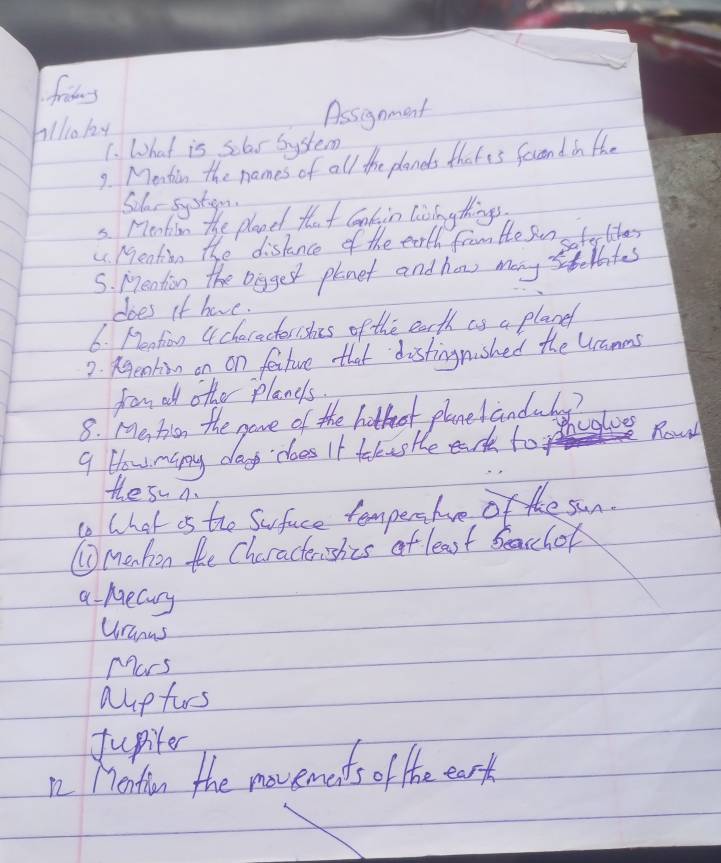 Friday
Assignment
11/10/24
1. What is Solar System
2. Mention the names of all the planets that is found in the
Solar system.
3. Mention the planet that Contain living things.
4. Mention the distance of the earth from the Sun
5. Mention the biggest planet and how many Saterlites
does it have.
6. Mention 4 characteristics of the earth as a planet
7. Mention on on feature that distinguished the Uranus
from all other Planets.
8. Mention the name of the hottest planet and why?
9 How many days does it takes the earth to Round
the sun.
10 What is the Surface temperature of the sun.
(11) Mention the Characteristics at least of
a - Mecury
Uranus
Mars
Jupiter
12 Mention the movements of the earth